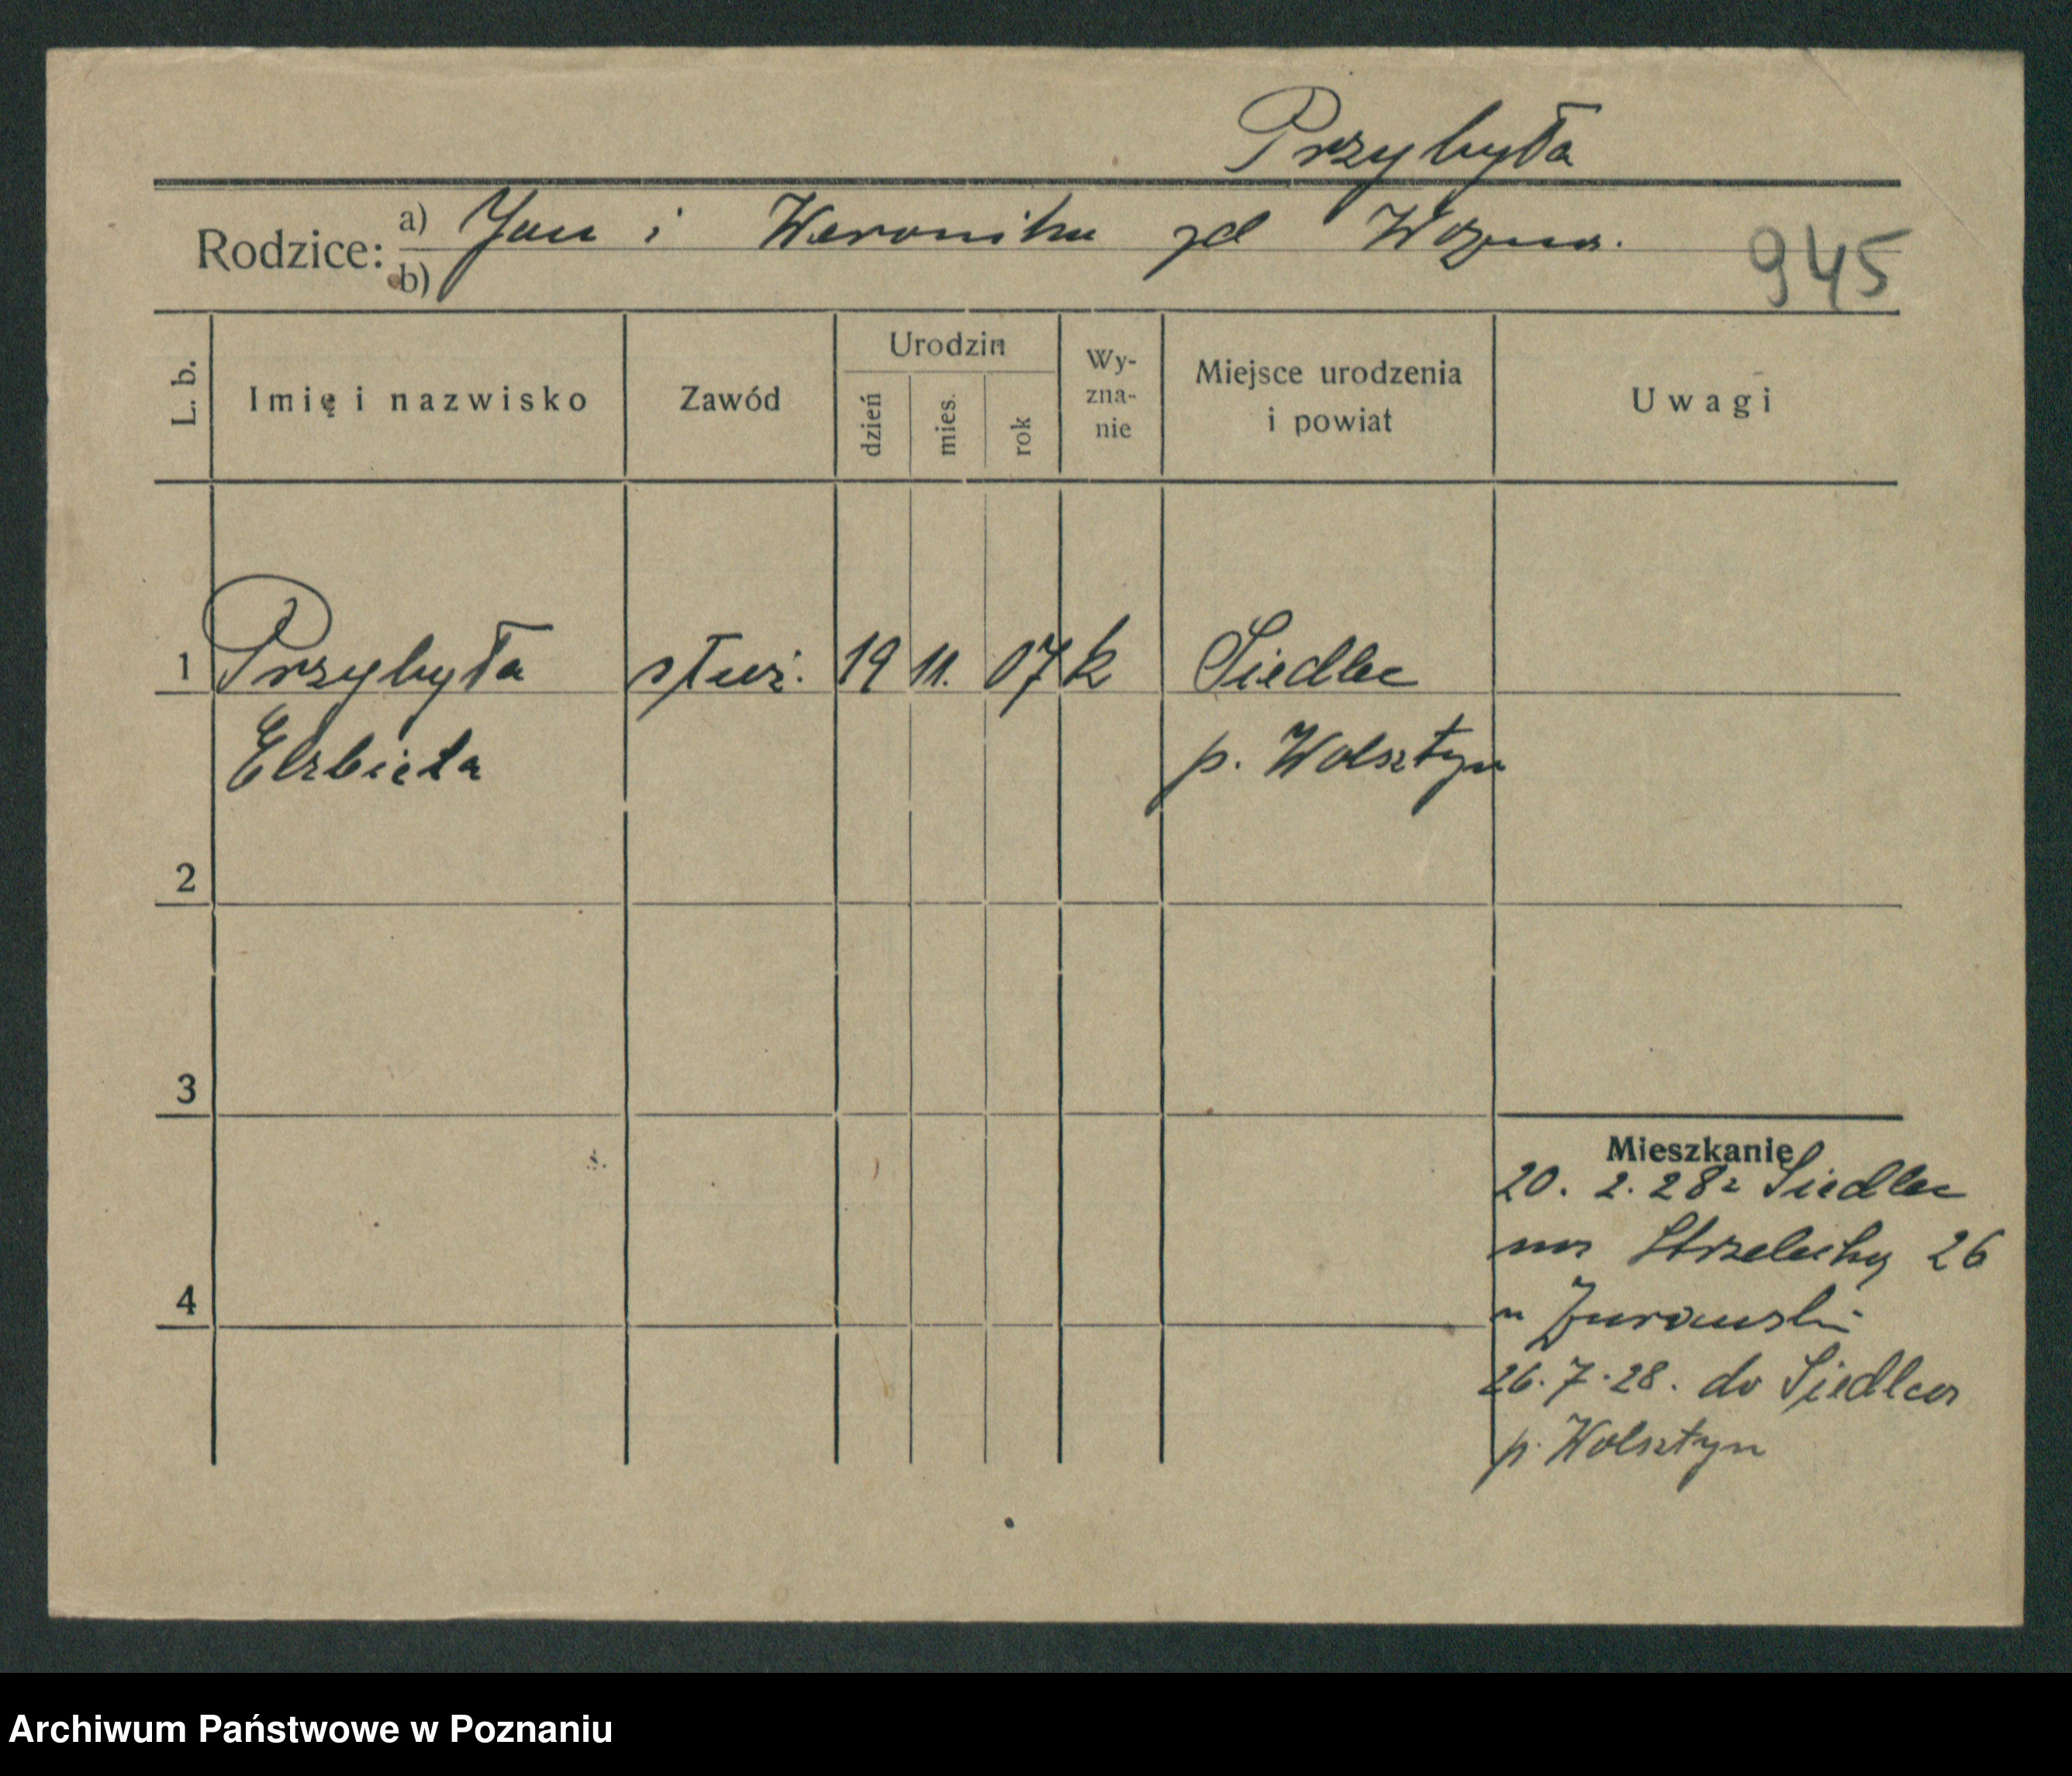 Przybyła
Rodzice: a) Jan i Weronika zd Woźna.
b)
945
L. b. Imię i nazwisko Zawód Urodzin dzień mies. rok Wy-zna-nie Miejsce urodzenia i powiat Uwagi
1 Przybyła służ. 19 11. 07 k Siedlec
Elżbieta p. Wolsztyn
2
3
Mieszkanie
20. 2. 28 z Siedlec
na Strzelecką 26
4
u Żurawski
26. 7. 28. do Siedlca
p. Wolsztyn
Archiwum Państwowe w Poznaniu